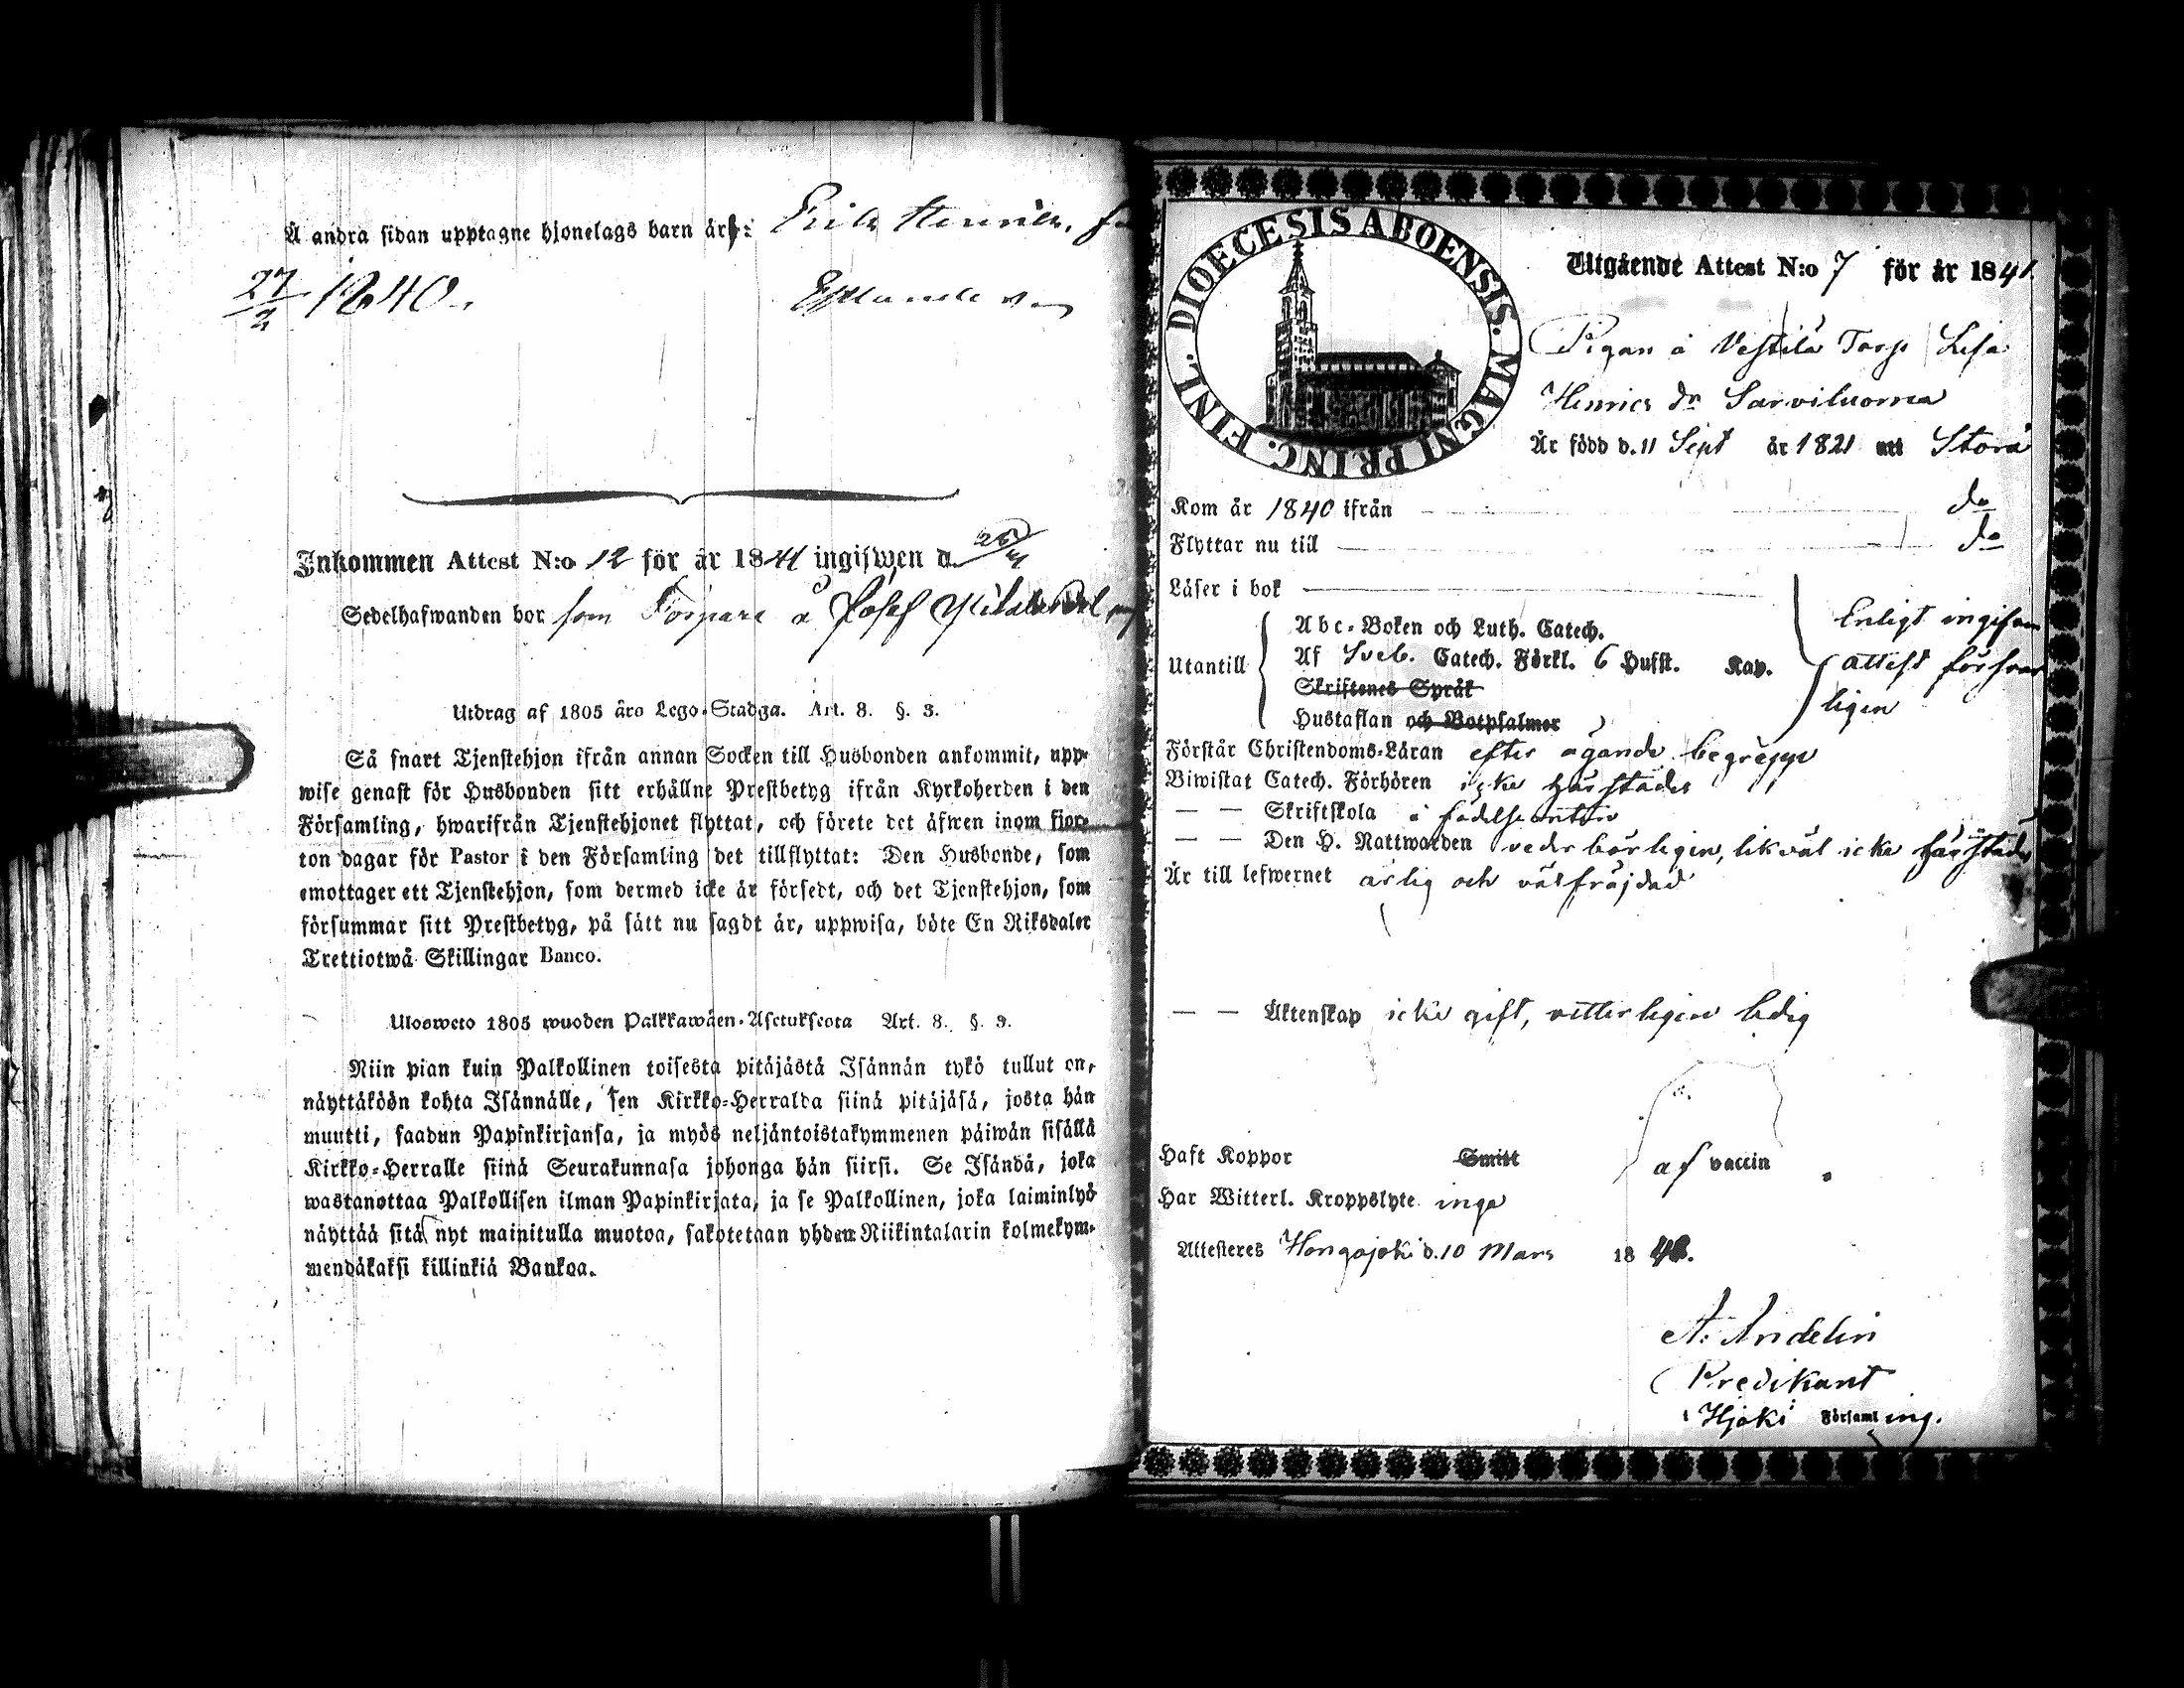 Å andra sidan upptagne hjonelags barn är: Erik Henrik, f
27/2 1840.
Inkommen Attest N:o 12 för år 1841 ingifwen d.
Sedelhafwanden bor som Torpare å Josef
Utdrag af 1805 års Lego-Stadga. Art. 8. §. 3.
Så snart Tjenstehjon ifrån annan Socken till Husbonden ankommit, upp-
wise genast för Husbonden sitt erhållne Prestbetyg ifrån Kyrkoherden i den
Församling, hwarifrån Tjenstehjonet flyttat, och förete det äfwen inom fjor-
ton dagar för Pastor i den Församling det tillflyttat: Den Husbonde, som
emottager ett Tjenstehjon, som dermed icke är försedt, och det Tjenstehjon, som
försummar sitt Prestbetyg, på sätt nu sagdt är, uppwisa, böte En Riksdaler
Trettiotwå Skillingar Banco.
Ulosweto 1805 wuoden Palkkawäen-Asetuksesta Art. 8. §. 3.
Niin pian kuin Palkollinen toisesta pitäjästä Isännän tykö tullut on,
näyttäköön kohta Isännälle, sen Kirkko-Herralda siinä pitäjäsä, josta hän
muutti, saadun Papinkirjansa, ja myös neljäntoistakymmenen päiwän sisällä
Kirkko-Herralle siinä Seurakunnasa johonga hän siirsi. Se Isändä, joka
wastanottaa Palkollisen ilman Papinkirjata, ja se Palkollinen, joka laiminlyö
näyttää sitä nyt mainitulla muotoa, sakotetaan yhden Riikintalarin kolmekym-
mendäkaksi killinkiä Bankoa.
DIOECESIS ABOENSIS. MAGNI PRINC. FINL.
Utgående Attest N:o 7 för år 1841.
Pigan å Vestilä Torp Lisa
Henrics dr Sarviluoma
Är född d. 11 Sept år 1821 uti Storå
Kom år 1840 ifrån do
Flyttar nu till do
Läser i bok
Abc-Boken och Luth. Catech.
Utantill Af Sveb. Catech. Förkl. 6 Hufst. Kap.
Skriftenes Språk
Hustaflan och Botpsalmer
Enligt ingifven
attest försvar
ligen
Förstår Christendoms-Läran efter ägande begrepp
Biwistat Catech. Förhören icke härstädes
— — Skriftskola å födelseorten
— — Den H. Nattwarden vederbörligen, likväl icke härstädes
Är till lefwernet ärlig och välfräjdad
— — Äktenskap icke gift, vitterligen ledig
Haft Koppor Smitt af vaccin
Har Witterl. Kroppslyte inga
Attesteres Hongojoki d. 10 Mars 18 41.
A. Andelin
Predikant
i Hjoki Församling.